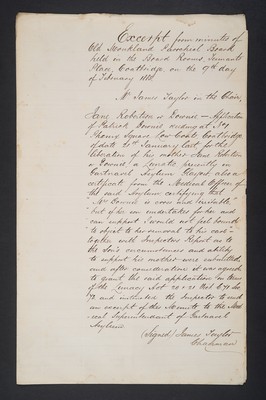 Excerpt from minutes of
Old Monkland Parochial Board
held in the Board Rooms, Tennants
Place, Coatbridge, on the 17th day
of February 1881.
Mr James Taylor in the Chair,
Jane Robertson or Downie — Application
of Patrick Downie residing at No 9
Square Low Coats, Coatbridge
of date 2 January last for the
liberation of his mother Jane Robertson
or Downie a Lunatic presently in
Gartnavel Asylum Glasgow also a
certificate from the Medical Officer of
the said Asylum certifying that
"Mrs Downie is over and
but if he can undertake for her and
can support I would not feel bound
to object to her removal to his care"
together with Inspectors Report as to
the Son's circumstances and ability
to support his mother were submitted,
and after consideration it was agreed
to grant the said application in terms
of the Lunacy Act 20 & 21 Vict C. 71 Sec.
92 and instructed the Inspector to send
an excerpt of this Minute to the Med-
ical Superintendent of Gartnavel
Asylum
(Signed) James Taylor
Chairman